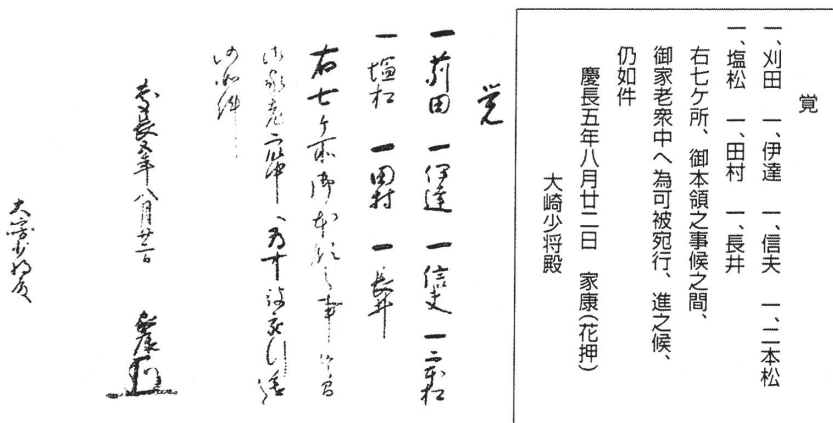 覚
一、刈田　一、伊達　一、信夫　一、二本松
一、塩松　一、田村　一、長井
右七ケ所、御本領之事候之間、
御家老衆中へ為可被宛行、進之候、
仍如件
慶長五年八月廿二日　家康(花押)
大崎少将殿
覚
一苅田　一伊達　一信夫　一二本松
一塩松　一田村　一長井
右七ケ所御本領之事候之間
御家老衆中へ為可被宛行進之候
仍如件
慶長五年八月廿二日　家康
大崎少将殿